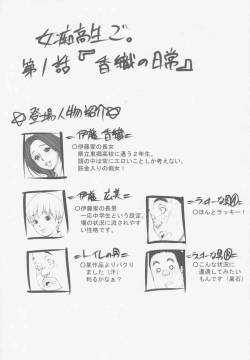 女痴高生で。
第1話『香織の日常』
登場人物紹介
伊藤 香織
○伊藤家の長女
県立東堀高校に通う2年生。
頭の中は常にエロいことしか考えない。
筋金入りの痴女!
伊藤 広美
○伊藤家の長男
一応中学生という設定。
場の状況に流されやす
い性格です。
ラッキーな男
○ほんとラッキー!
トイレの男
○某作品よりパクり
ました(汗)
判るかなぁ?
ラッキーな男
○こんな状況に
遭遇してみたい
もんです(黒石)